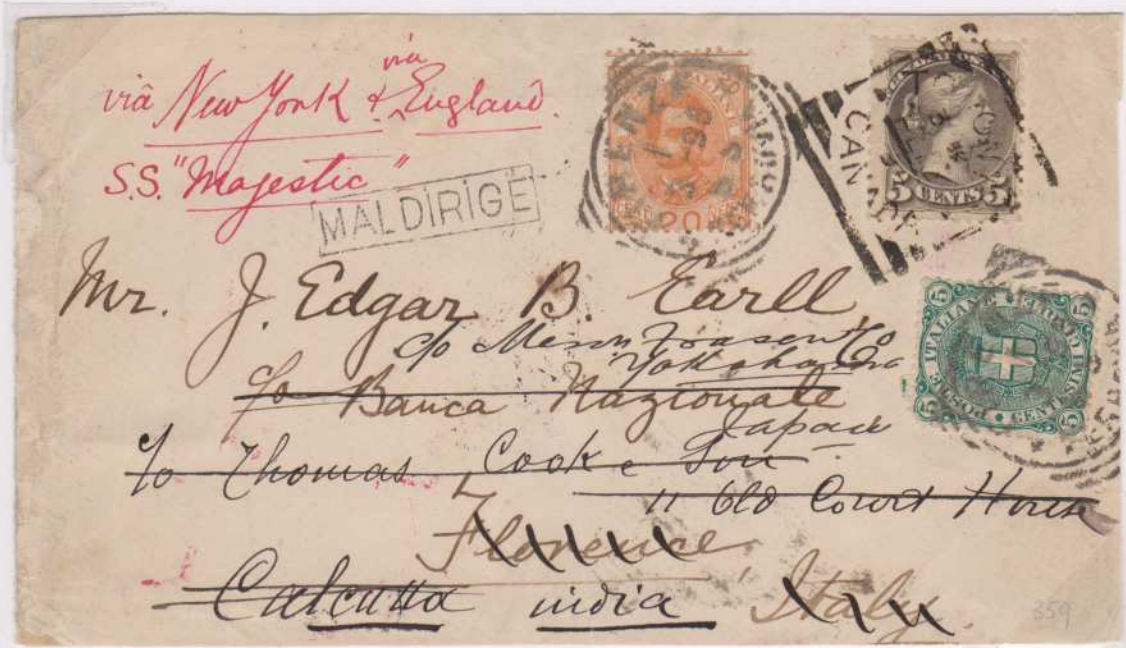 via
via New York & England.
S.S. "Majestic"
MALDIRIGÉ
CANADA
5 CENTS 5
20
POSTALE ITALIANE
5 CENTESIMI CINQUE 5
Mr. J. Edgar B. Earll,
c/o Messrs Fraser & Co
Yokohama
c/o Banca Nazionale
Japan
c/o Thomas Cook & Son
11 Old Court House
Florence,
Calcutta india Italy.
359